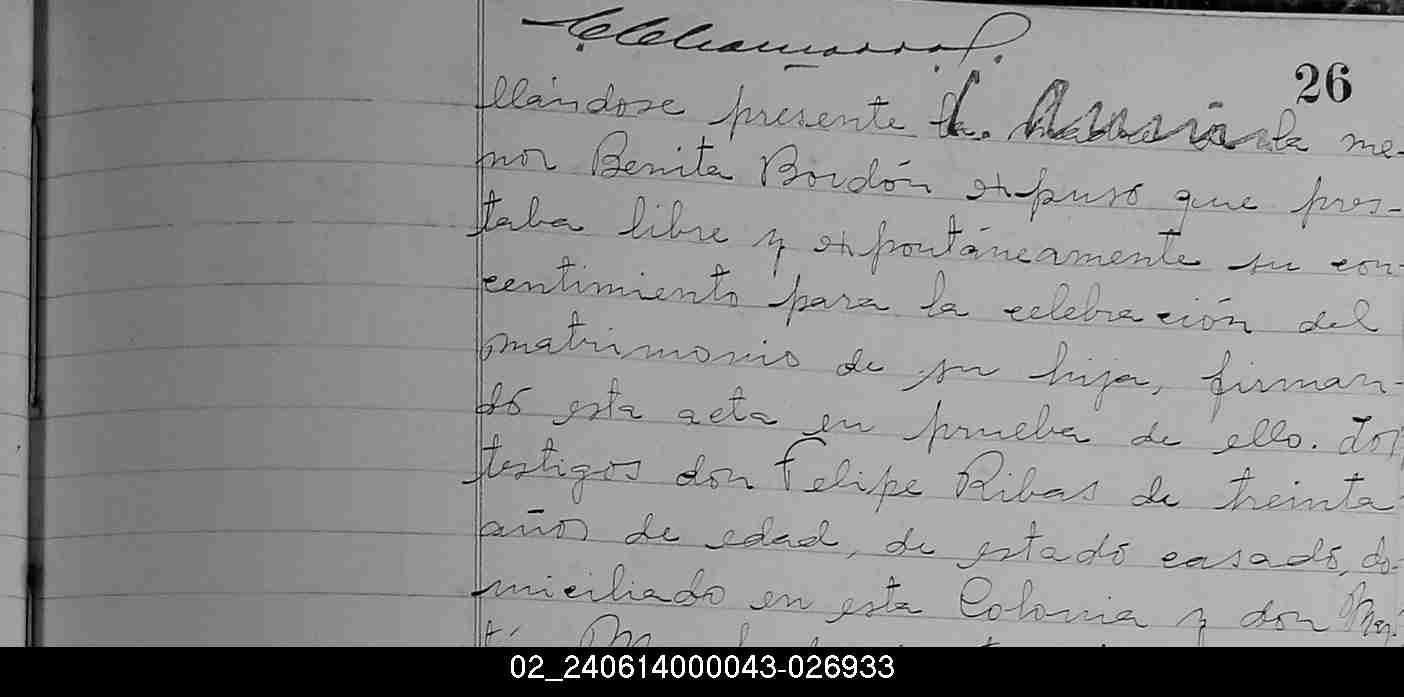 26
llándose presente la madre de la me-
nor Benita Bordón expuso que pres-
taba libre y expontáneamente su con-
centimiento para la celebración del
matrimonio de su hija, firman-
do esta acta en prueba de ello. Los
testigos don Felipe Ribas de treinta
años de edad, de estado casado, do-
miciliado en esta Colonia y don
02_240614000043-026933